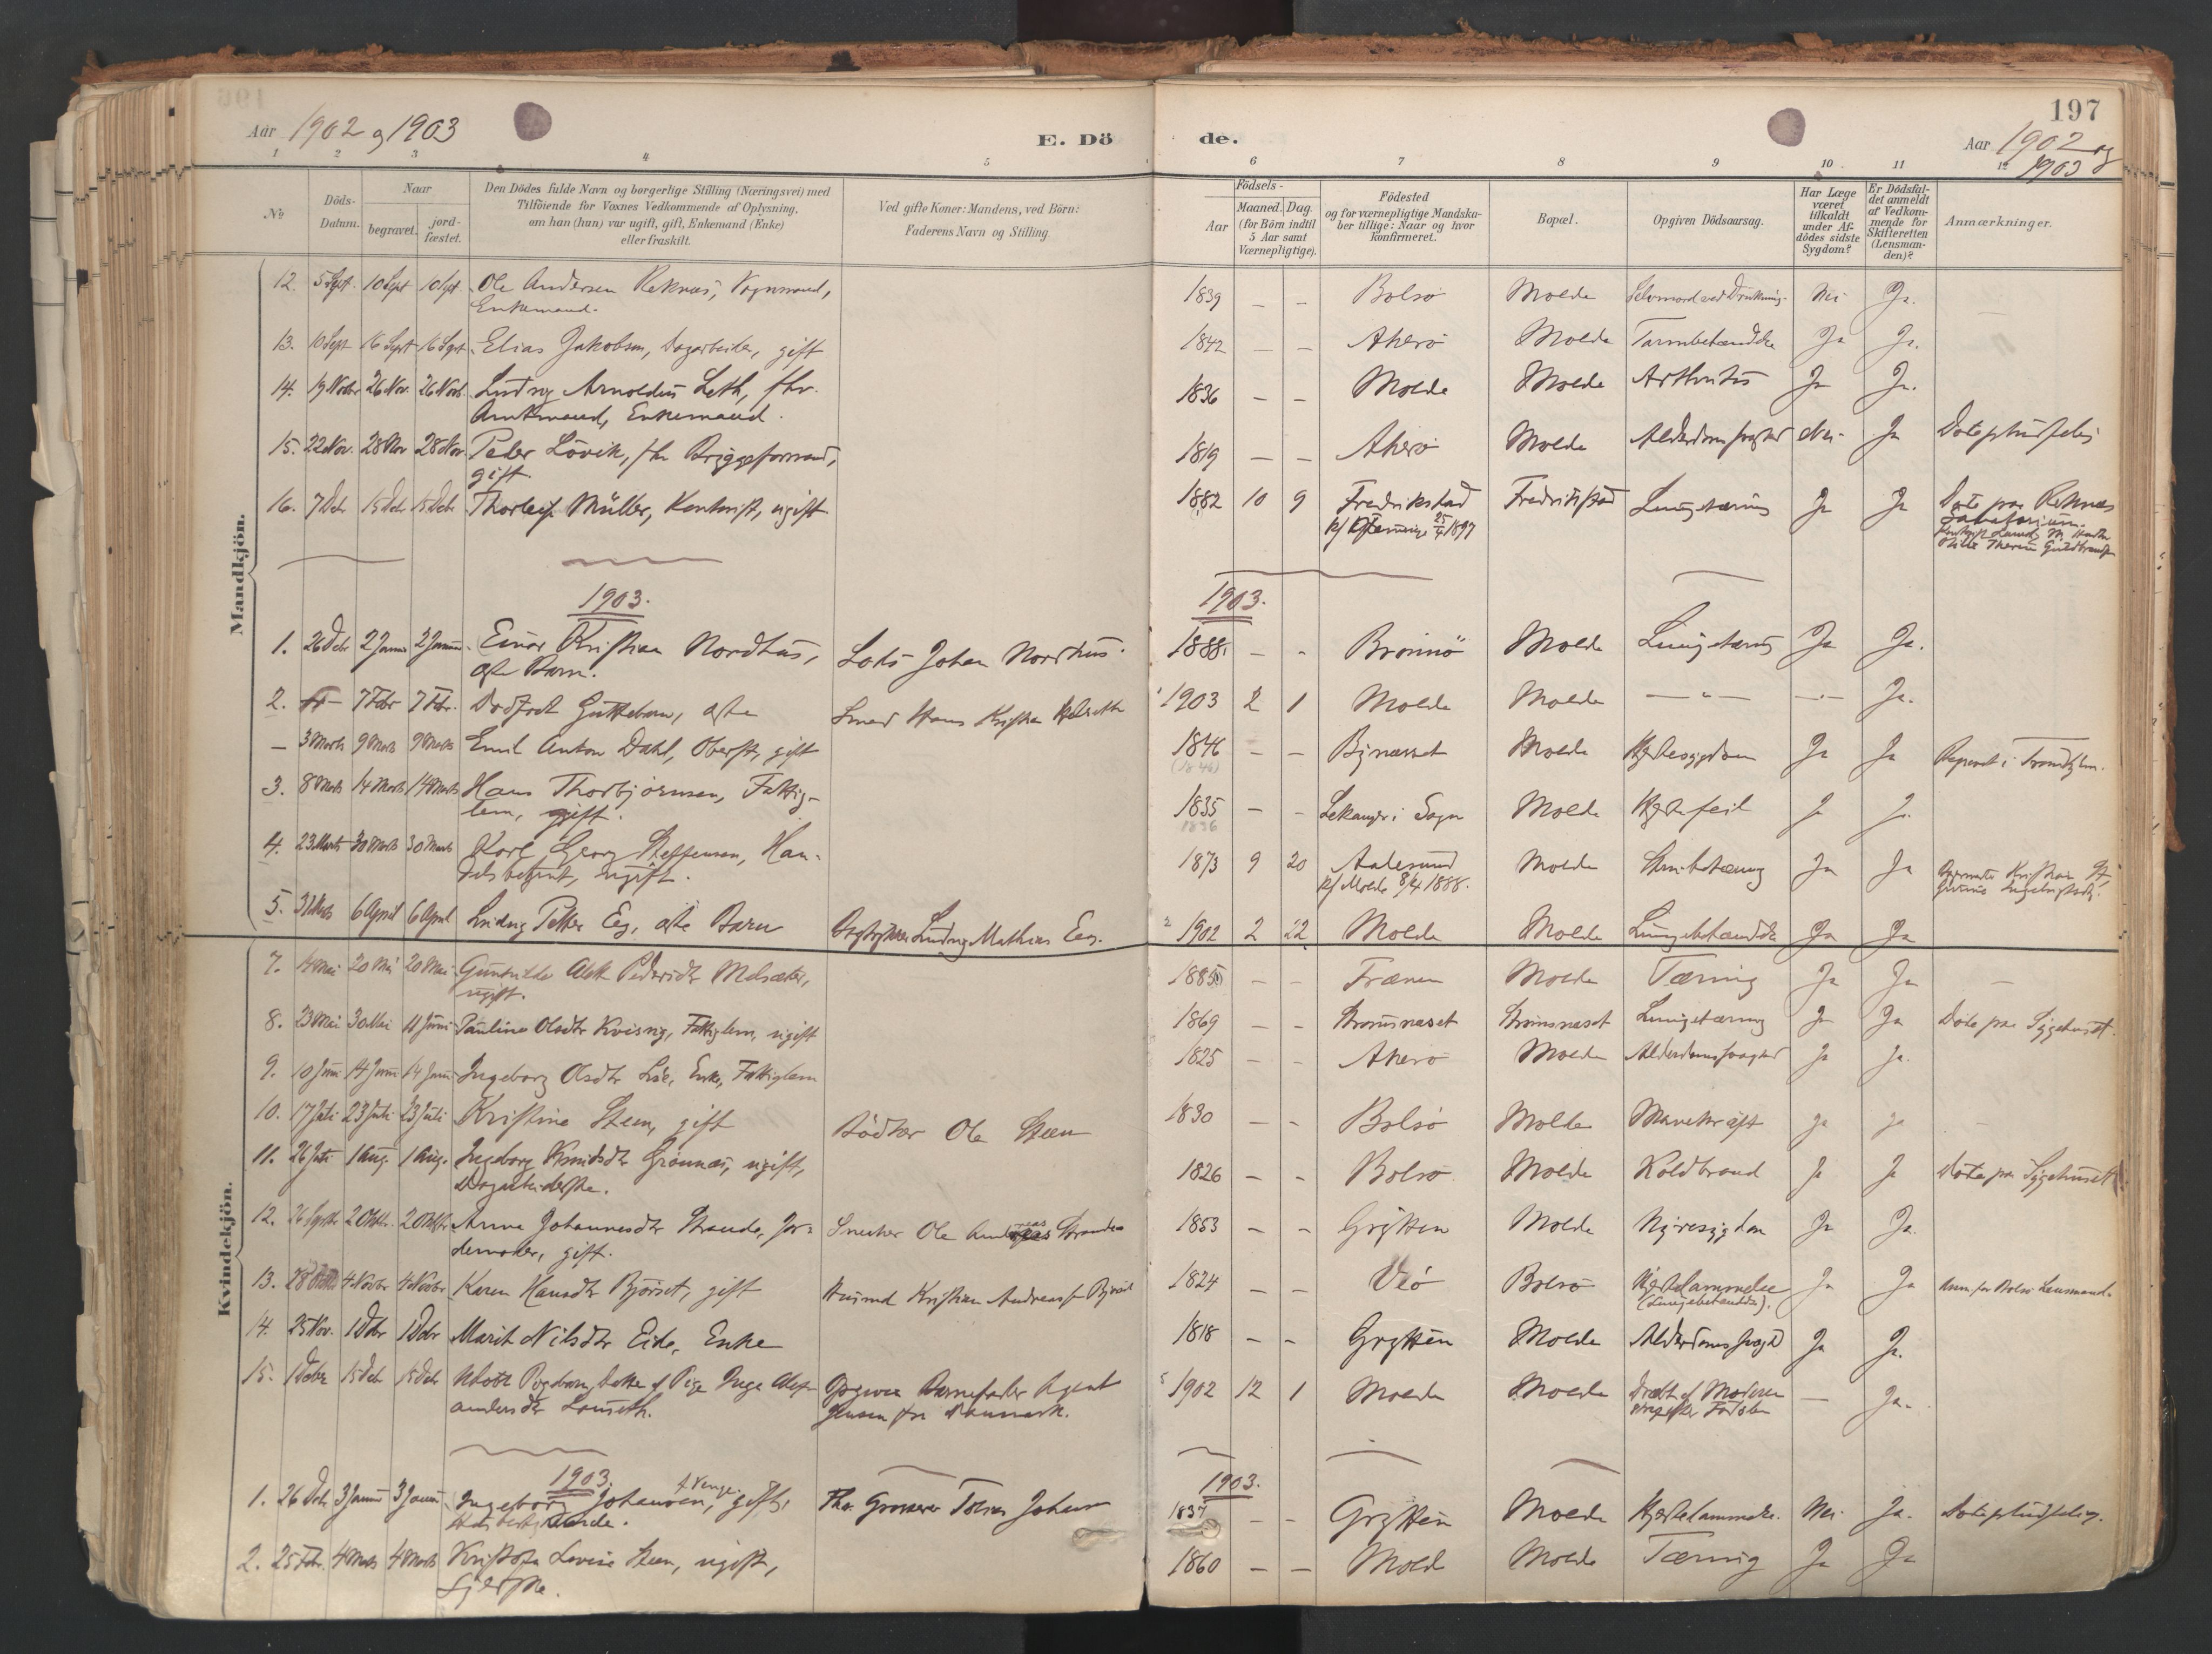 197
Aar 1902 og 1903
E. Döde.
Aar 1902 og
1903
1 2 3 4 5 6 7 8 9 10 11 12
№
Döds-
Datum.
Naar
begravet.
jord-
fæstet.
Den Dödes fulde Navn og borgerlige Stilling (Næringsvei) med
Tilföiende for Voxnes Vedkommende af Oplysning,
om han (hun) var ugift, gift, Enkemand (Enke)
eller fraskilt.
Ved gifte Koner: Mandens, ved Börn:
Faderens Navn og Stilling
Födsels-
Aar
Maaned. Dag.
(for Börn indtil
5 Aar samt
Værnepligtige).
Födested
og for værnepligtige Mandska-
ber tillige: Naar og hvor
konfirmeret.
Bopæl.
Opgiven Dödsaarsag.
Har Læge
været
tilkaldt
under Af-
dödes sidste
Sygdom?
Er Dödsfal-
det anmeldt
af Vedkom-
mende for
Skifteretten
(Lensman-
den)?
Anmærkninger.
Mandkjön.
12. 5 Sept. 10 Sept 10 Sept. Ole Andersen Reknes, Vognmand, 1839 — — Bolsö Molde Selvmord ved Drukning. Nei Ja.
Enkemand.
13. 10 Sept 16 Sept 16 Sept. Elias Jakobsen, Dagarbeider, gift 1842 — — Akerö Molde Tarmbetændelse Ja Ja.
14. 19 Novbr 26 Nov. 26 Novb. Ludvig Arnoldus Leth, fhv. 1836 — — Molde Molde Arthritis Ja Ja.
Amtmand, Enkemand.
15. 22 Nov. 28 Nov 28 Nov Peder Lövik, fhv Bryggeformand, 1819 — — Akerö Molde Alderdomssvaghed Nei. Ja Döde pludselig
gift.
16. 7 Deb. 15 Deb 15 Deb. Thorleif Müller, Kontorist, ugift 1882 10 9 Fredrikstad Fredrikstad Lungetæring Ja Ja Döde paa Reknæs
25/4 1897 Sanatorium.
1903. 1903.
1. 26 Debr 2 Januar 2 Januar. Einar Kristian Nordhus, Lods Johan Nordhus. 1888. — - Brönnö Molde Lungetæring Ja Ja.
ægte Barn.
2. — 7 Febr 7 Febr. Dödfödt Guttebarn, ægte Smed Hans Kristian 1903 2 1 Molde Molde — " — —·— Ja.
— 3 Marts 9 Marts 9 Marts Emil Anton Dahl, Oberst, gift 1846 — — Bynæsset Molde Hjertesygdom Ja Ja i Trondhjem.
(1846)
3. 8 Marts 14 Marts 14 Marts Hans Thorbjörnsen, Fattig- 1835 — - Lekanger i Sogn Molde Hjertefeil Ja Ja.
lem, gift. 1836
4. 23 Marts 30 Marts 30 Marts Karl Georg Steffensen, Han- 1873 9 20 Aalesund Molde Ja Ja
delsbetjent, ugift. k/ Molde 8/4 1888.
5. 31 Marts 6 April 6 April Ludvig Petter Eeg, ægte Barn Ludvig Mathias Eeg. 1902 2 22 Molde Molde Lungebetændelse Ja Ja
Kvindekjön.
7. 14 Mai 20 Mai 20 Mai. Gunhilde Pedersdtr Melsæter, 1885 — — Frænen Molde Tæring Ja Ja —
ugift.
8. 23 Mai 30 Mai 11 Juni Pauline Olsdtr Kvisvig, Fattiglem, ugift 1869 — — Strømsneset Strømsneset Lungetæring Ja Ja Döde paa Sygehuset.
9. 10 Juni 14 Juni 14 Juni Ingeborg Olsdtr Enke, Fattiglem 1825 — — Akerö Molde Alderdomssvaghed Ja Ja.
10. 17 Juli 23 Juli 23 Juli Kristine Steen, gift Bödker Ole Steen 1830 — — Bolsö Molde Mavekræft ja ja
11. 26 Juli 1 Aug. 1 Aug. Ingeborg Knudsdtr Grönnes, ugift, 1826 — — Bolsö Molde Koldbrand Ja Ja Döde paa Sygehuset
Dagarbeiderske.
12. 26 Septbr 2 Oktbr. 2 Oktbr Anne Johannesdtr Strande, Jor- Snedker Ole Andreas Strande 1853 — — Grytten Molde Nyresygdom Ja Ja
demoder, gift.
13. 28 4 Novbr 4 Novbr Karen Hansdtr Björset, gift Husmd Kristian Björset 1824 — — Veö Bolsö Hjertelammelse Ja Ja Anm. for Bolsö Lensmand.
(Lungebetændelse).
14. 25 Nov. 1 Debr 1 Debr Marit Nilsdtr Eide, Enke 1818 — — Grytten Molde Alderdomssvaghed Ja Ja.
15. 1 Debr 15 Deb 15 Deb Udöbt Pigebarn, Datter af Pige Inga Opgiven Barnefader Agent 1902 12 1 Molde Molde Dræbt af Moderen — Ja.
Jensen fra Danmark. strax efter Fødselen
1903. 1903.
1. 26 Deb 3 Januar 3 Januar Ingeborg Johansen, f. Venge. gift, Fhv. Grosserer Tobias Johansen 1837 — — Grytten Molde Hjertelammelse. Nei Ja. Döde pludselig.
2. 25 Febr. 4 Marts 4 Marts Kristofa Lovise Steen, ugift, 1860 — — Molde Molde Tæring Ja Ja
Syerske.